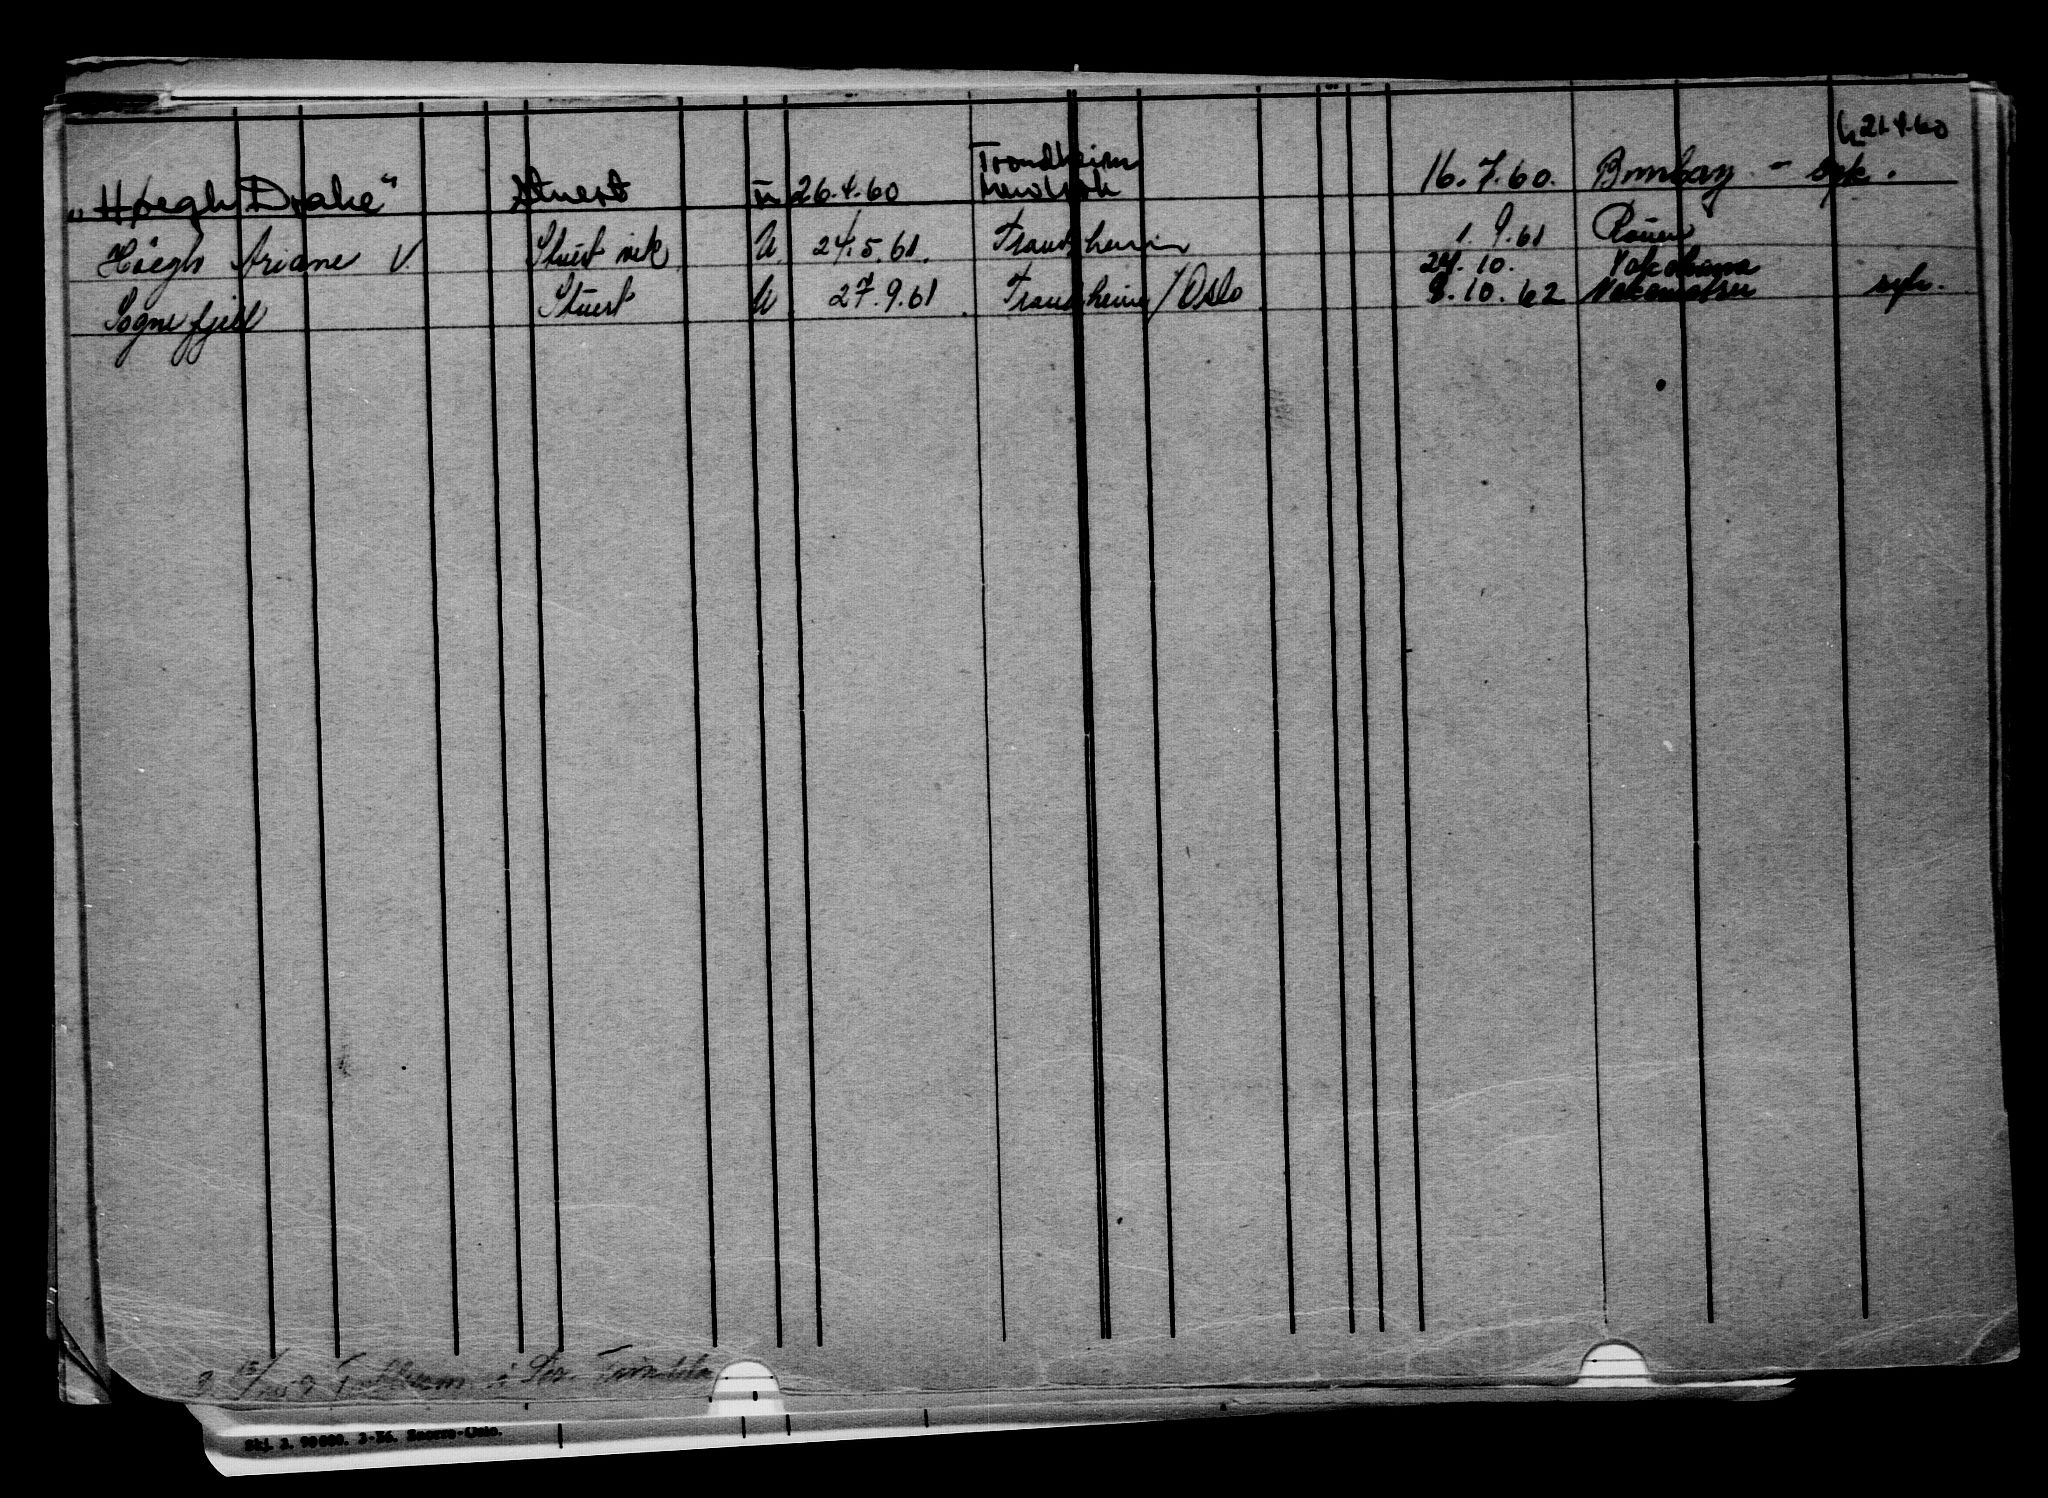 h 21.4.60
"Høegh Drake" Stuert u 26.4.60 Trondheim 16.7.60. Bombay - syk.
Höegh Ariane V. Stuert vik U 24.5.61. Trondheim 1.9.61 Rouen
24.10. Yokohama
Sognefjell Stuert U 27.9.61 Trondheim/Oslo 9.10.62 syk.
Skj. 2. 90000. 3-56. Snorre-Oslo.